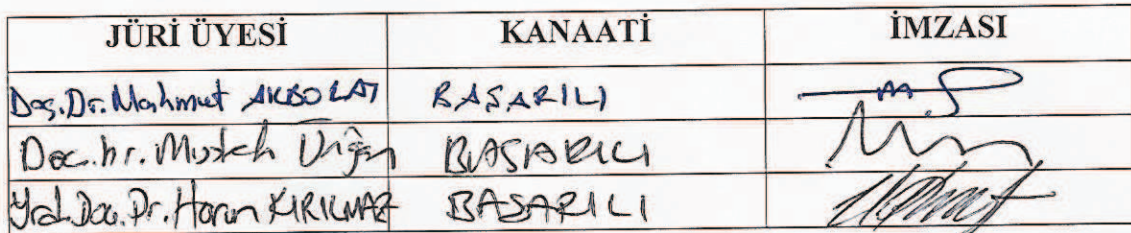 JÜRİ ÜYESİ KANAATİ İMZASI
Doç.Dr. Mahmut AKBOLAT BAŞARILI
Doç.Dr. BAŞARILI
Yrd.Doç.Dr. Harun KIRILMAZ BAŞARILI